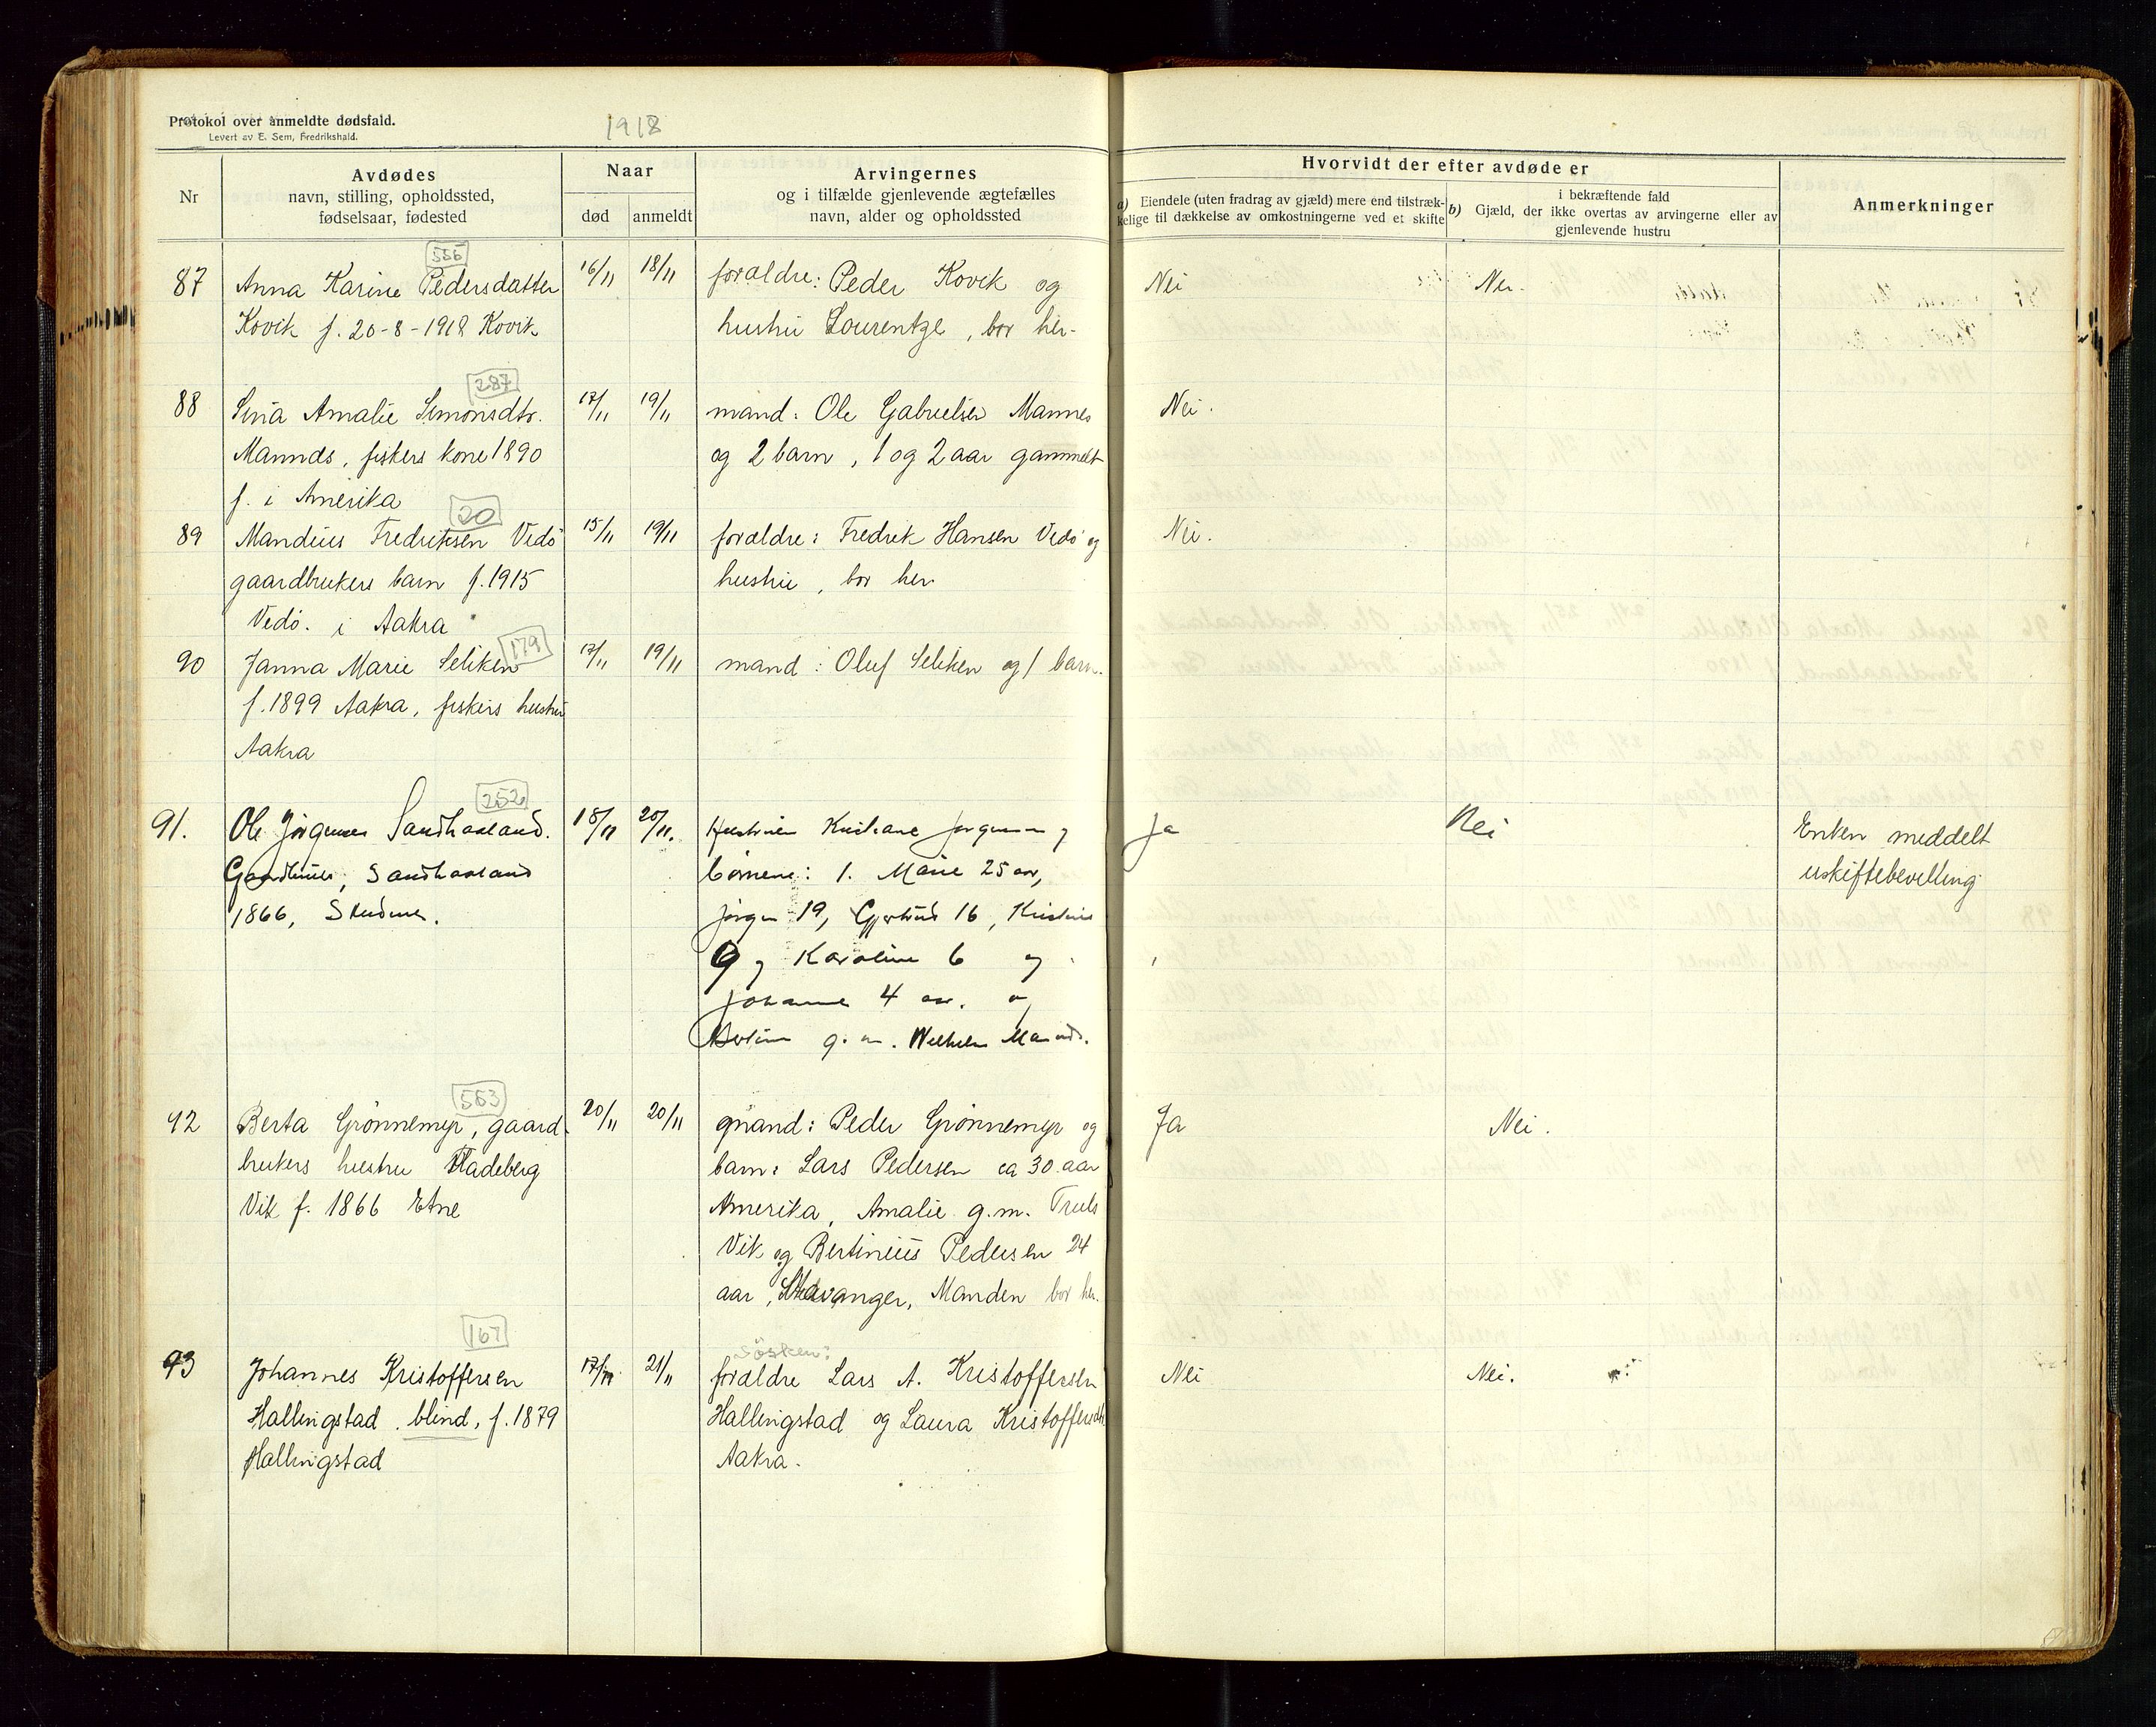 Protokol over anmeldte dødsfald.
Levert av E. Sem, Fredrikshald.
1918
Nr
Avdødes
navn, stilling, opholdssted,
fødselsaar, fødested
Naar
død
anmeldt
Arvingernes
og i tilfælde gjenlevende ægtefælles
navn, alder og opholdssted
Hvorvidt der efter avdøde er
a) Eiendele (uten fradrag av gjæld) mere end tilstræk-
kelige til dækkelse av omkostningerne ved et skifte
i bekræftende fald
b) Gjæld, der ikke overtas av arvingerne eller av
gjenlevende hustru
Anmerkninger
556
87 Anna Karine Pedersdatter 16/11 18/11 forældre: Peder Kovik og Nei Nei.
Kovik f. 20-8-1918 Kovik hustru Lourentze, bor her.
287
88 Sina Amalie Simonsdtr. 17/11 19/11 mand: Ole Gabrielsen Mannes Nei.
Mannes, fiskers kone 1890 og 2 barn, 1 og 2 aar gammelt
f. i Amerika
20
89 Mandius Fredriksen Vedö 15/11 19/11 forældre: Fredrik Hansen Vedö og Nei.
gaardbrukers barn f. 1915 hustru, bor her.
Vedö. i Aakra
179
90 Janna Marie Seliken 17/11 19/11 mand: Oluf Seliken og 1 barn.
f. 1899 Aakra, fiskers hustru
Aakra
252
91. Ole Jörgensen Sandhaaland. 18/11 20/11. Hustruen Kristiane Jörgensen og Ja Nei Enken meddelt
Sandhaaland börnene: 1. Marie 25 aar, uskiftebevilling
1866, Jörgen 19, Gjertrud 16, Kristine
9 og Karoline 6 og
Johanne 4 aar. og
g. m. Wilhelm
563
92 Berta Grönnemyr, gaard- 20/11 20/11 mand: Peder Grönnemyr og Ja Nei.
brukers hustru Fladeberg barn: Lars Pedersen ca 30 aar
Vik f. 1866 Etne Amerika, Amalie g.m. Truls
Vik og Bertinius Pedersen 24
aar, Stavanger, Manden bor her.
167
søsken:
93 Johannes Kristoffersen 17/11 21/11 forældre Lars A. Kristoffersen Nei Nei.
Hallingstad. blind, f. 1879 Hallingstad og Laura Kristoffersdtr.
Hallingstad Aakra.